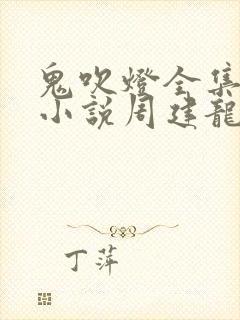 鬼吹燈全集
小説周建龍
丁萍